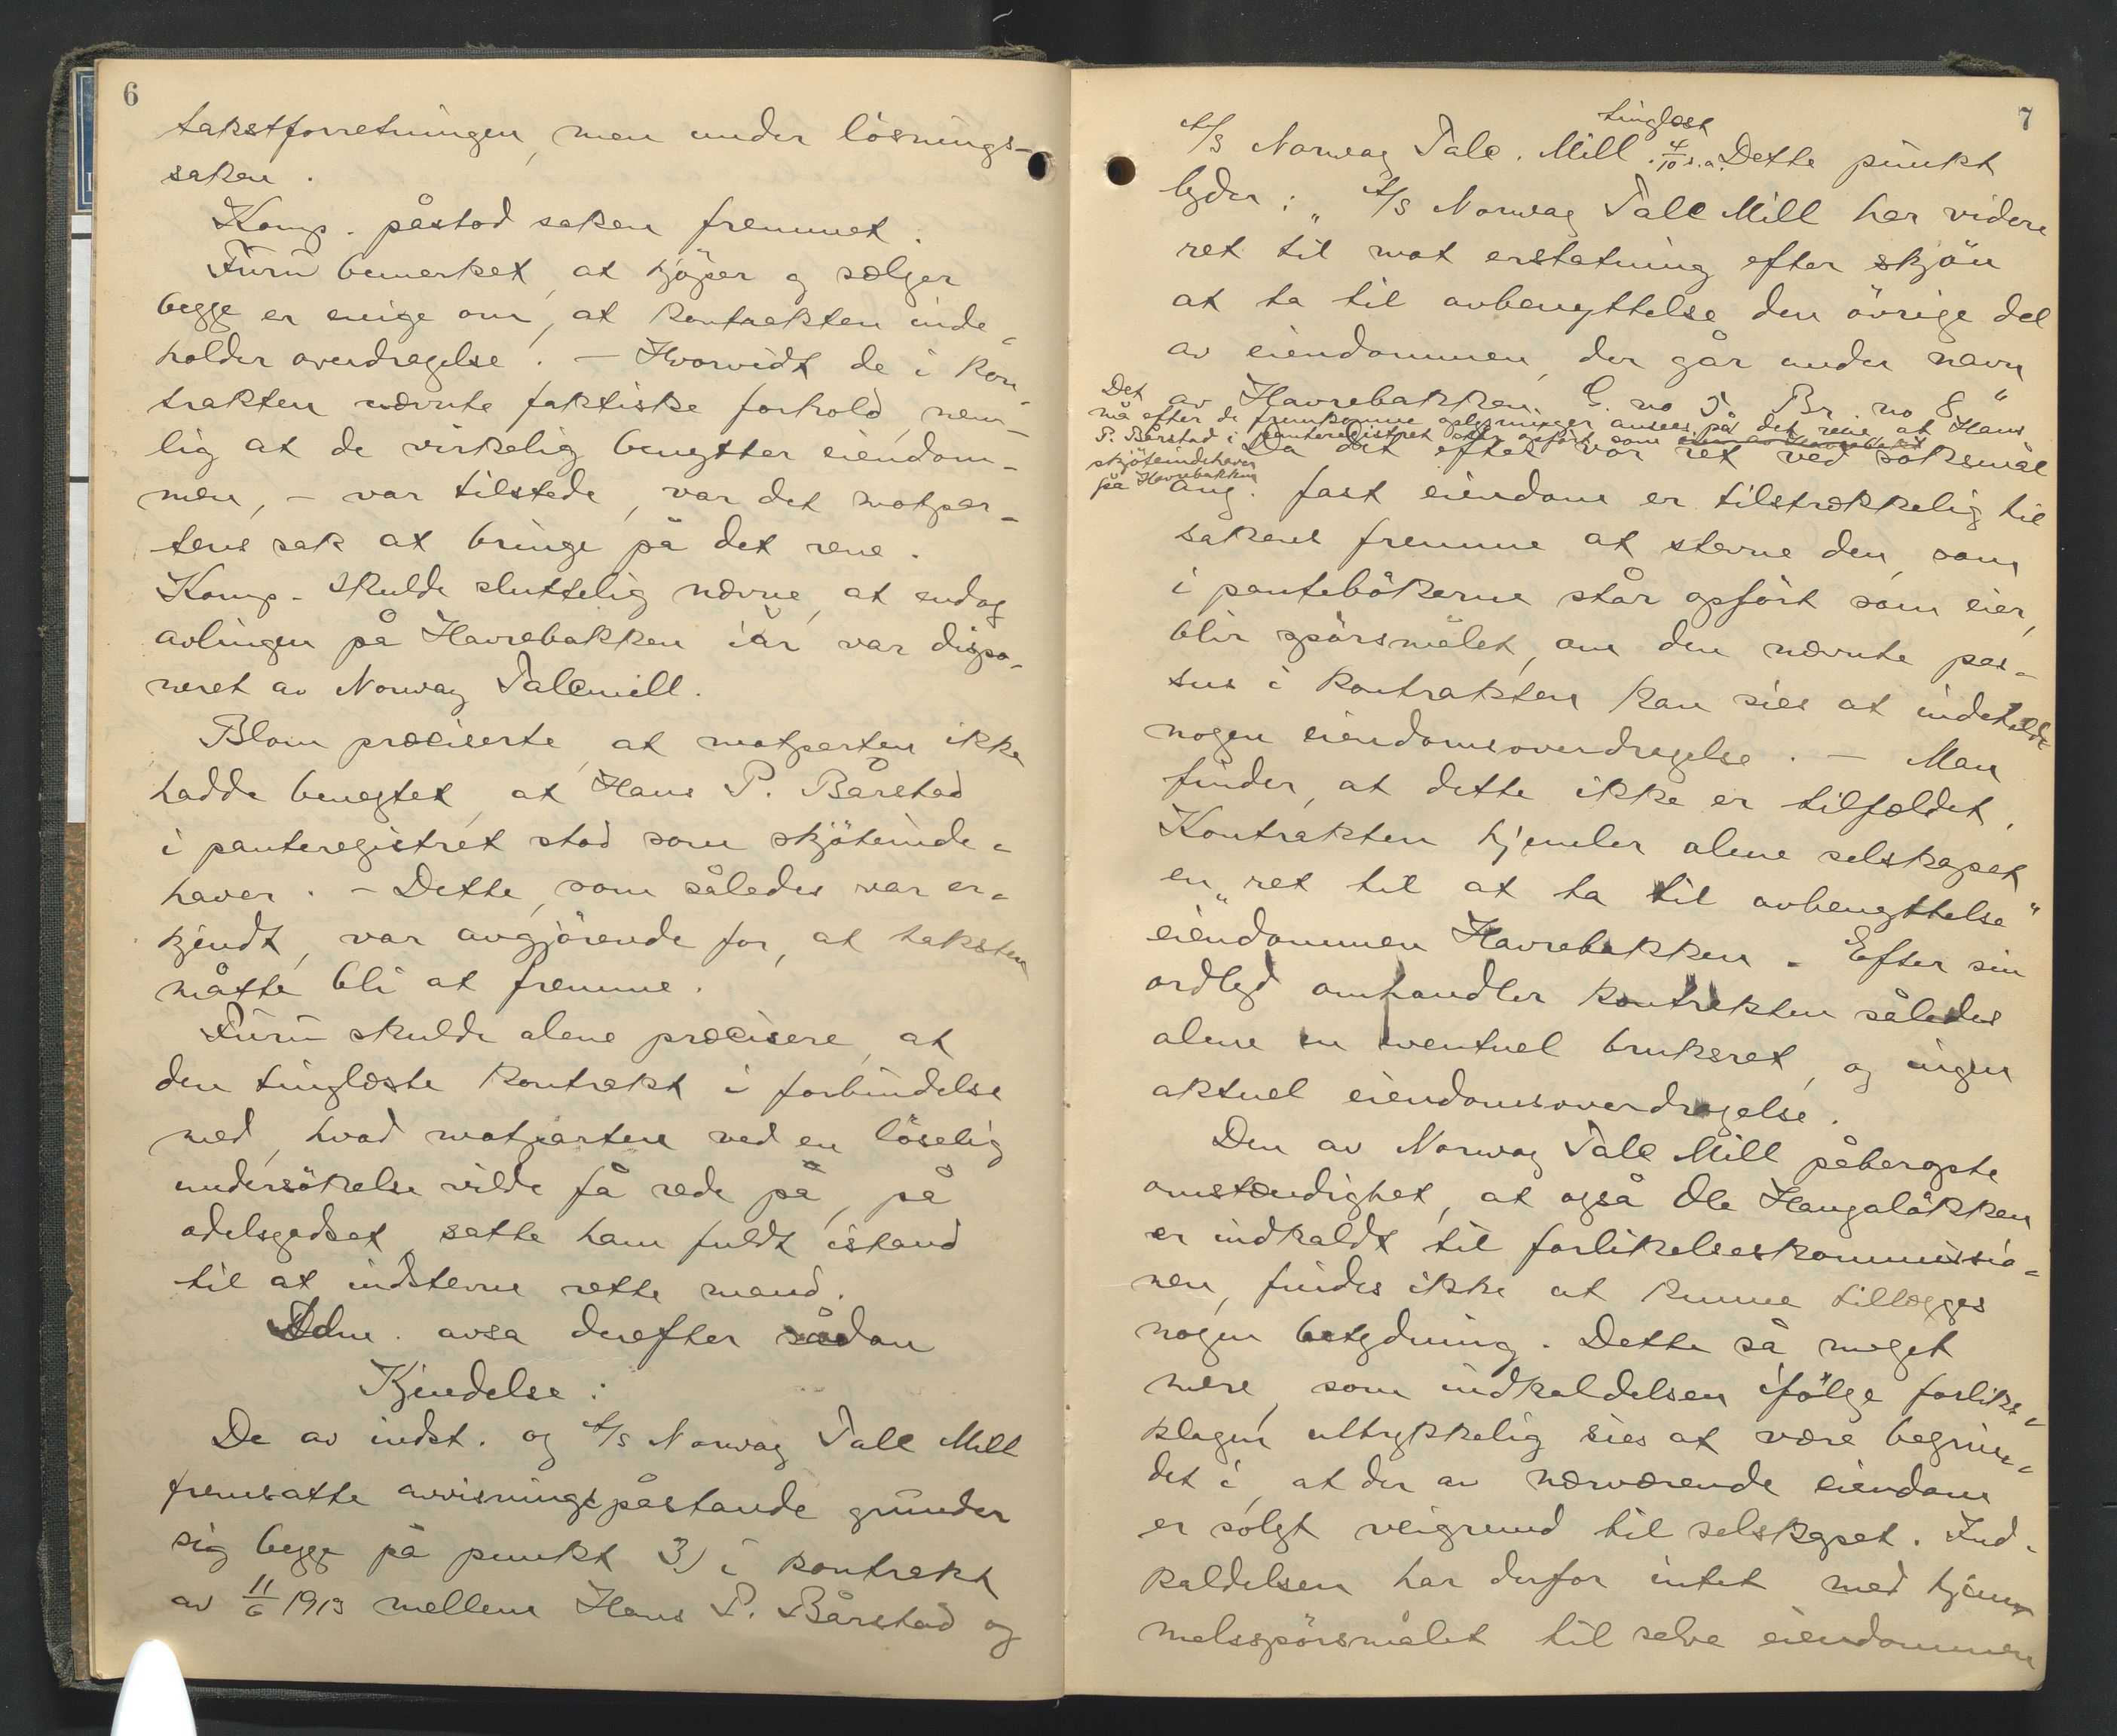 6
takstforretningen, men under lösnings-
saken.
Komp. påstod saken fremmet.
Furu bemerket, at kjöper og sælger
begge er enige om, at kontrakten inde-
holder overdragelse. – Hvorvidt de i kon-
trakten nævnte faktiske forhold, nem-
lig at de virkelig benytter eiendom-
men, – var tilstede, var det motpar-
tens sak at bringe på det rene.
Komp. skulde sluttelig nævne, at endog
avlingen på Havrebakken iår var dispo-
neret av Norway Talcmill.
Blom præciserte, at motparten ikke
hadde benegtet, at Hans P. Bårstad
i panteregistret stod som skjöteinde-
haver. – Dette, som således var er-
kjendt, var avgjörende for, at taksten
måtte bli at fremme.
Furu skulde alene præcisere, at
den tinglæste kontrakt i forbindelse
med, hvad motparten ved en löselig
undersökelse vilde få rede på, på
odelsgodset, satte ham fuldt istand
til at indstevne rette mand.
Adm. avsa derefter sådan
Kjendelse:
De av indst. og A/S Norway Talc Mill
fremsatte avvisningspåstande grunder
sig begge på punkt 3) i kontrakt
av 11/6 1913 mellem Hans P. Bårstad og
7
tinglæst
A/S Norway Talc. Mill. 4/10 s.a. Dette punkt
lyder: „A/S Norway Talc Mill har videre
ret til mot erstatning efter skjön
at ta til avbenyttelse den övrige del
av eiendommen, der går under navn
av Havrebakken G. no 5 Br. no 8"
Det
må efter de fremkomne oplysninger ansees på det rene, at Hans
P. Bårstad i panteregistret står opfört som
skjöteindehaver
på Havrebakken
Da det efter vor ret ved söksmål
ang. fast eiendom er tilstrækkelig til
sakens fremme at stevne den, som
i pantebökerne står opfört som eier,
blir spörsmålet, om den nævnte pas-
sus i kontrakten kan sies at indeholde
nogen eiendomsoverdragelse. – Man
finder, at dette ikke er tilfældet.
Kontrakten hjemler alene selskapet
en „ret til at ta til avbenyttelse"
eiendommen Havrebakken. Efter sin
ordlyd omhandler kontrakten således
alene en eventuel bruksret, og ingen
aktuel eiendomsoverdragelse.
Den av Norway Talc Mill påberopte
omstændighet, at også Ole Haugalökken
er indkaldt til forlikelseskommissio-
nen, findes ikke at kunne tillægges
nogen betydning. Dette så meget
mere, som indkaldelsen ifölge forliks-
klagen uttrykkelig sies at være begrun-
det i, at der av nærværende eiendom
er solgt veigrund til selskapet. Ind-
kaldelsen har derfor intet med hjem-
melsspörsmålet til selve eiendommen